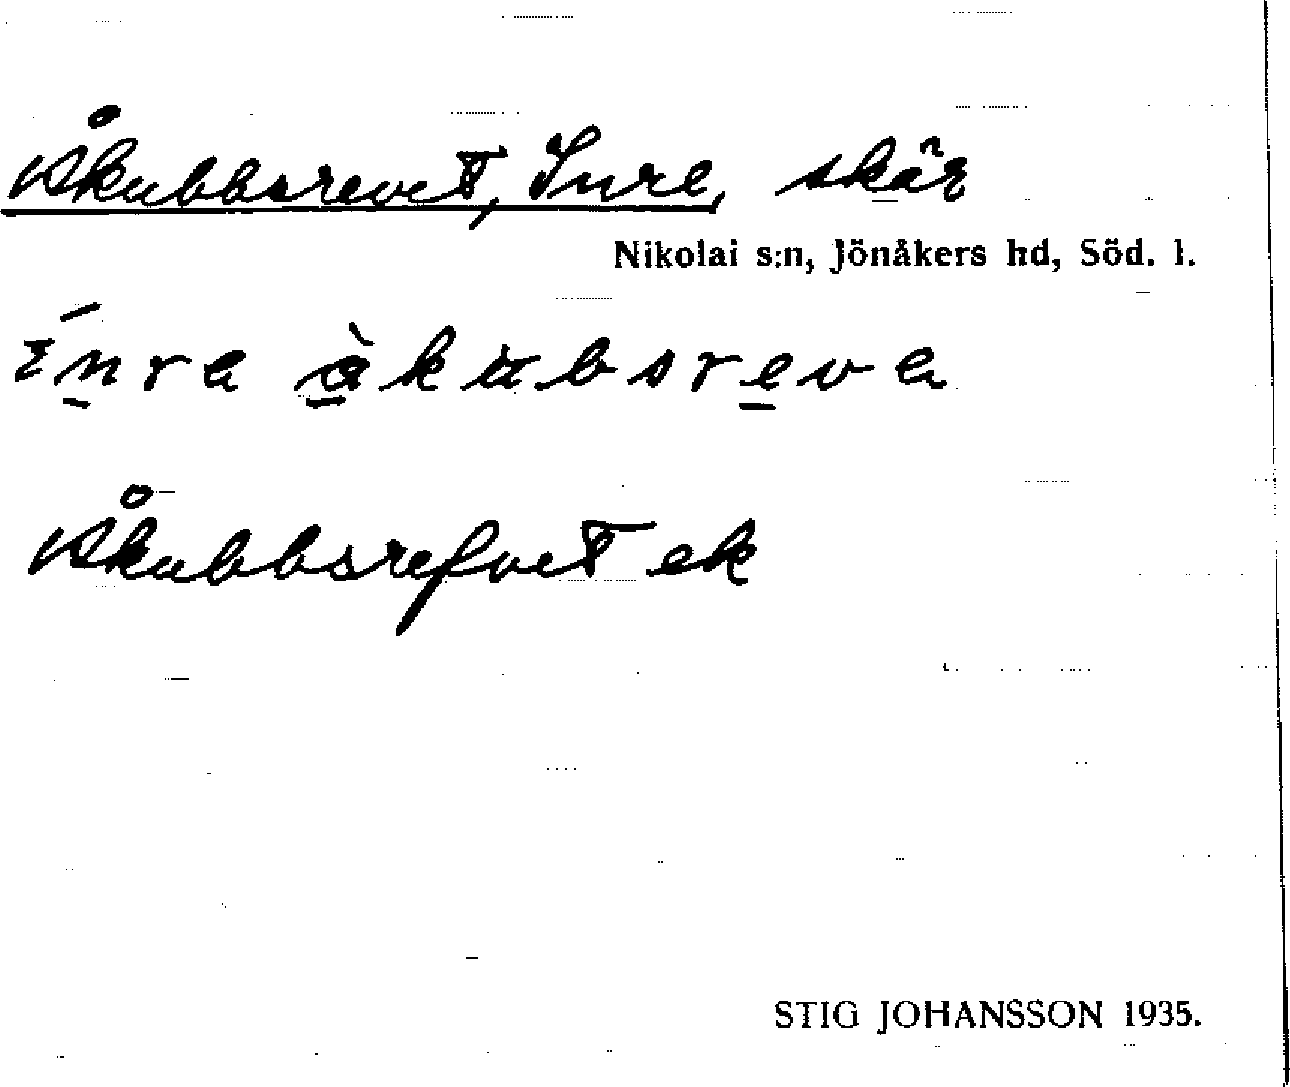 Åkubbsrevet, Inre, skär
Nikolai s:n, Jönåkers hd, Söd. l.
ɪ́nra å̀kubsreva
Åkubbsrefvet ek
STIG JOHANSSON 1935.